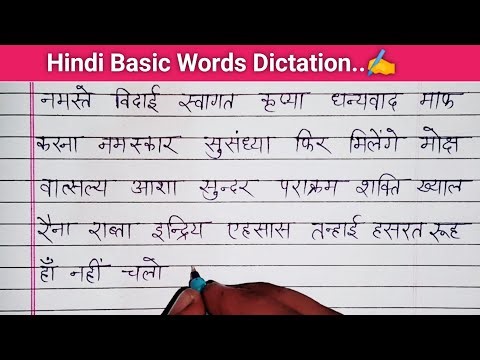 Hindi Basic Words Dictation..✍️
नमस्ते विदाई स्वागत कृप्या धन्यवाद माफ
करना नमस्कार सुसंध्या फिर मिलेंगे मोक्ष
वात्सल्य आशा सुन्दर पराक्रम शक्ति ख्याल
रैना राब्ता इन्द्रिय एहसास तन्हाई हसरत रूह
हाँ नहीं चलो